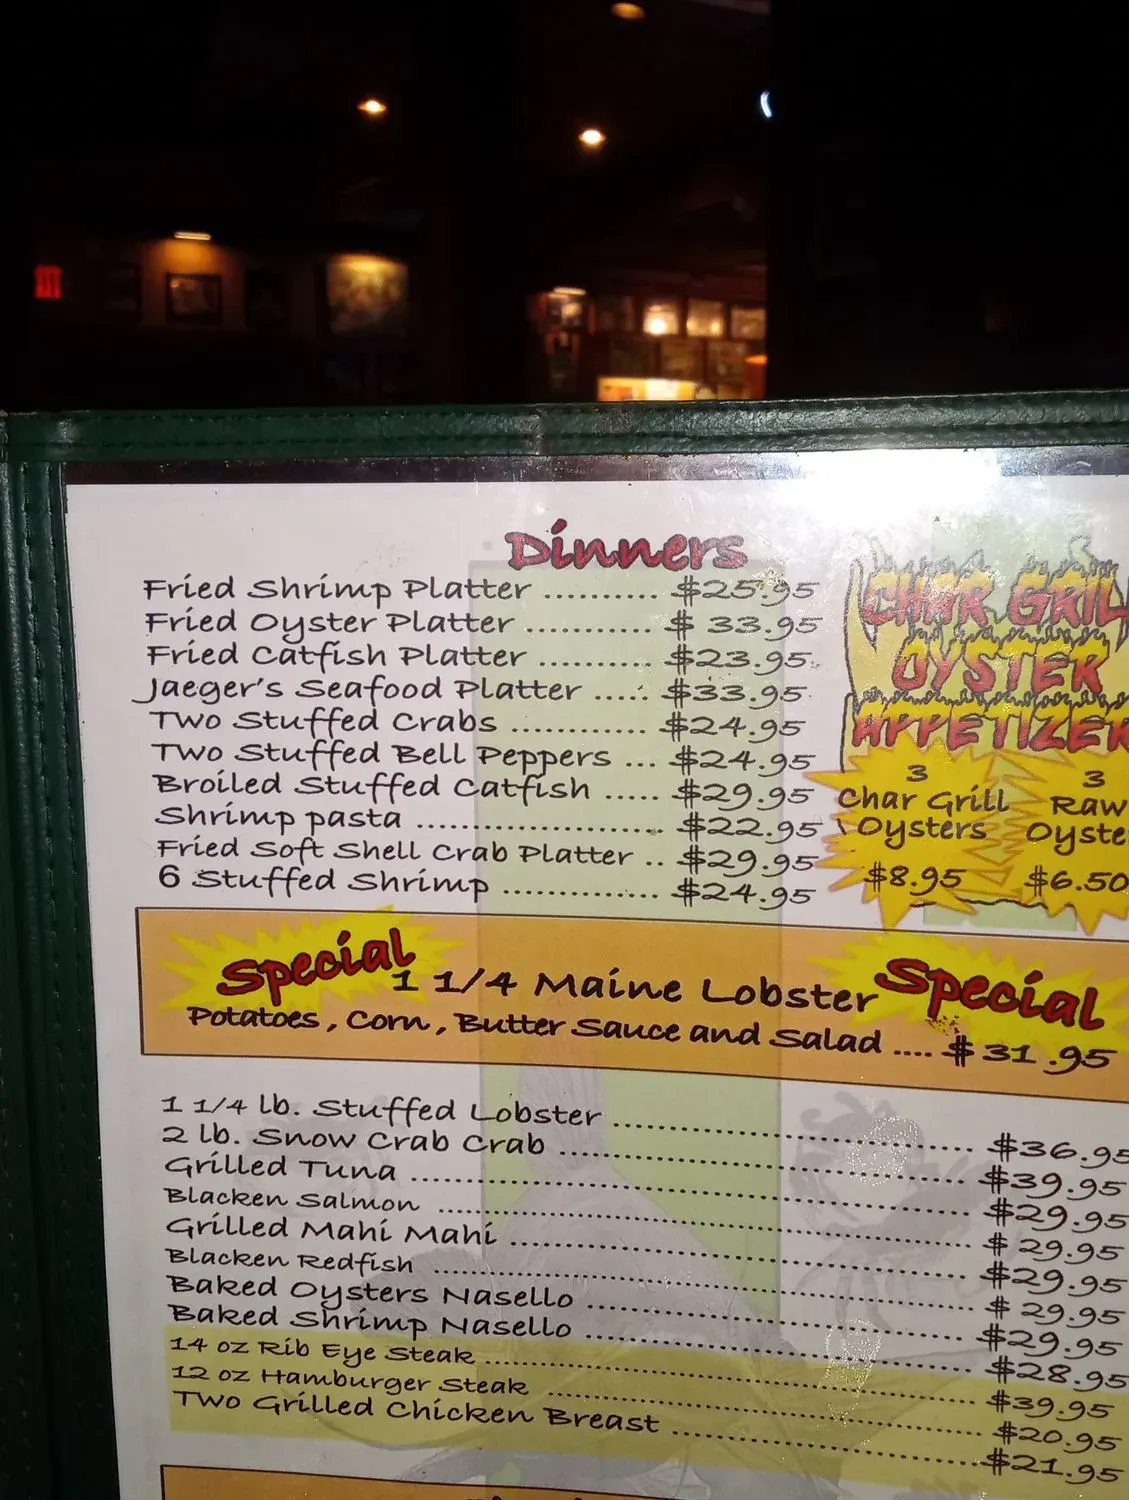 Dinners
Fried Shrimp Platter .......... $25.95
Fried Oyster Platter ........... $ 33.95
Fried Catfish Platter .......... $23.95
Jaeger's Seafood Platter ..... $33.95
Two Stuffed Crabs ............ $24.95
Two Stuffed Bell Peppers ... $24.95
Broiled Stuffed Catfish ..... $29.95
Shrimp pasta ..................... $22.95
Fried Soft Shell Crab Platter .. $29.95
6 Stuffed Shrimp .............. $24.95
CHAR GRIL
OYSTER
APPETIZER
3
Char Grill
Oysters
$8.95
3
Raw
Oyste
$6.50
Special
1 1/4 Maine Lobster
Special
Potatoes, Corn, Butter Sauce and Salad .... $ 31.95
1 1/4 lb. Stuffed Lobster ........ $36.95
2 lb. Snow Crab Crab ........ $39.95
Grilled Tuna ........ $29.95
Blacken Salmon ........ $ 29.95
Grilled Mahi Mahi ........ $29.95
Blacken Redfish ........ $ 29.95
Baked Oysters Nasello ........ $29.95
Baked Shrimp Nasello ........ $28.95
14 oz Rib Eye Steak ........ $39.95
12 oz Hamburger Steak ........ $20.95
Two Grilled Chicken Breast ........ $21.95